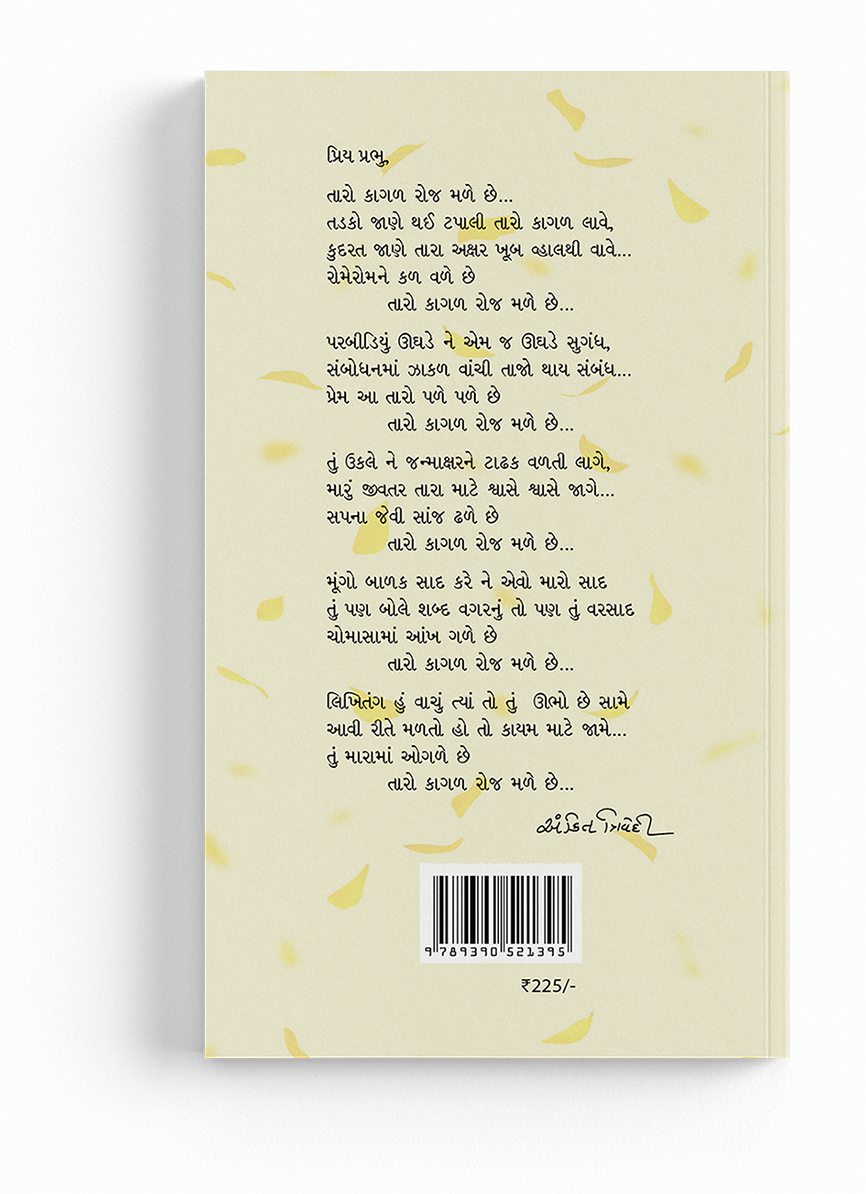 પ્રિય પ્રભુ,
તારો કાગળ રોજ મળે છે...
તડકો જાણે થઈ ટપાલી તારો કાગળ લાવે,
કુદરત જાણે તારા અક્ષર ખૂબ વ્હાલથી વાવે...
રોમેરોમને કળ વળે છે
તારો કાગળ રોજ મળે છે...
પરબીડિયું ઊઘડે ને એમ જ ઊઘડે સુગંધ,
સંબોધનમાં ઝાકળ વાંચી તાજો થાય સંબંધ...
પ્રેમ આ તારો પળે પળે છે
તારો કાગળ રોજ મળે છે...
તું ઉકલે ને જન્માક્ષરને ટાઢક વળતી લાગે,
મારું જીવતર તારા માટે શ્વાસે શ્વાસે જાગે...
સપના જેવી સાંજ ઢળે છે
તારો કાગળ રોજ મળે છે...
મૂંગો બાળક સાદ કરે ને એવો મારો સાદ
તું પણ બોલે શબ્દ વગરનું તો પણ તું વરસાદ
ચોમાસામાં આંખ ગળે છે
તારો કાગળ રોજ મળે છે...
લિખિતંગ હું વાચું ત્યાં તો તું ઊભો છે સામે
આવી રીતે મળતો હો તો કાયમ માટે જામે...
તું મારામાં ઓગળે છે
તારો કાગળ રોજ મળે છે...
અંકિત ત્રિવેદી
9 789390 521395
₹225/-